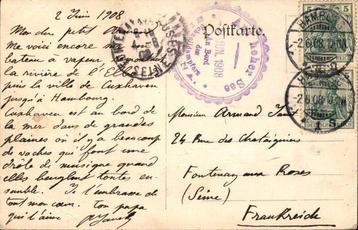 2 Juin 1908
Mon cher petit
Me voici encore
bateau à vapeur
la rivière de l'E
puis la ville de Cuxhaven
jusqu'à Hambourg.
Cuxhaven est au bord de
la mer dans de grandes
plaines où il y a beaucoup
de vaches qui font une
drôle de musique quand
elles beuglent toutes en-
semble. Je t'embrasse de
tout mon cœur. Ton papa
qui t'aime
Postkarte.
hoher See
JUN. 1908
An Bord
des
HAMBURG
2.6.08
Monsieur Armand
Rue des Chataigniers
Fontenay aux Roses
(Seine)
Frankreich
5
5